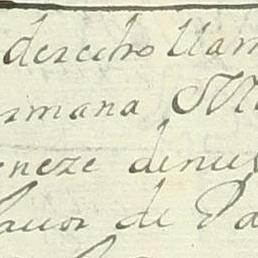 derecho llam
rmana
eneze denue
fauor de Pa